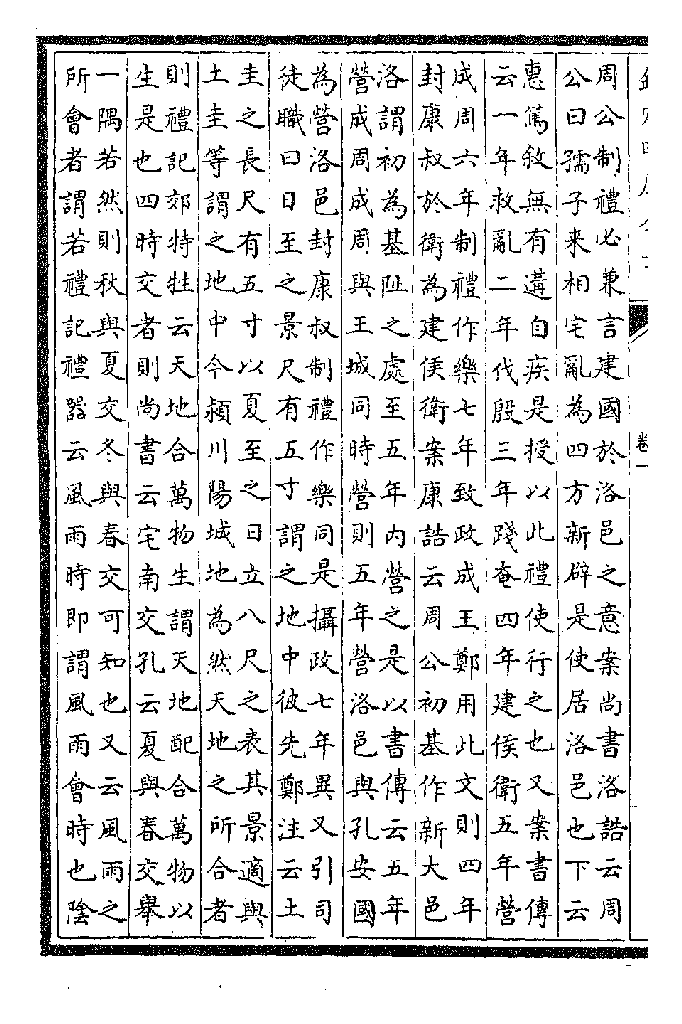 周公制禮必兼言建國於洛邑之意案尚書洛誥云周
公曰孺子来相宅亂為四方新辟是使居洛邑也下云
惠篤敘無有遘自疾是授以此禮使行之也又案書傳
云一年救亂二年代殷三年踐奄四年建侯衛五年營
成周六年制禮作樂七年致政成王鄭用此文則四年
封康叔於衛為建侯衛案康誥云周公初基作新大邑
洛謂初為基阯之處至五年内營之是以書傳云五年
營成周成周與王城同時營則五年營洛邑與孔安國
為營洛邑封康叔制禮作樂同是攝政七年異又引司
徒職曰日至之景尺有五寸謂之地中彼先鄭注云土
圭之長尺有五寸以夏至之日立八尺之表其景適與
土圭等謂之地中今潁川陽城地為然天地之所合者
則禮記郊特牲云天地合萬物生謂天地配合萬物以
生是也四時交者則尚書云宅南交孔云夏與春交舉
一隅若然則秋與夏交冬與春交可知也又云風雨之
所會者謂若禮記禮器云風雨時即謂風雨會時也陰